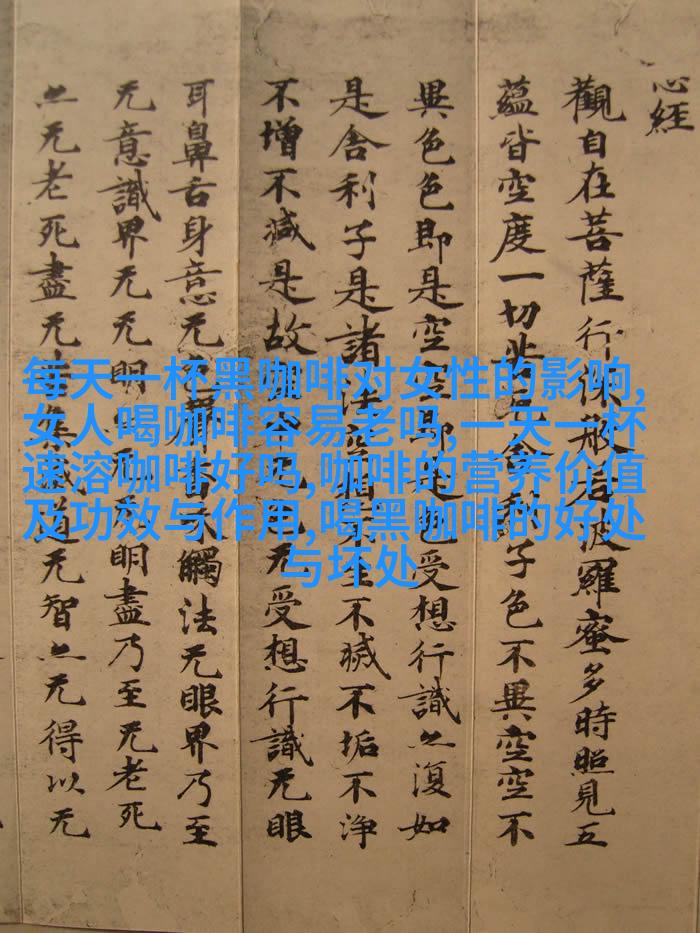 心経
觀自在菩薩行深般若波羅蜜多時照見五
蘊皆空度一切苦厄舍利子色不異空空不
異色色即是空空即是色受想行識亦復如
是舍利子是諸法空相不生不滅不垢不淨
不增不減是故无受想行識无眼
耳鼻舌身意无色聲香味觸法无眼界乃至
无意識界无无明亦无无明盡乃至无老死
亦无老死盡无苦集滅道无智亦无得以无
每天一杯黑咖啡对女性的影响,
女人喝咖啡容易老吗,一天一杯
速溶咖啡好吗,咖啡的营养价值
及功效与作用,喝黑咖啡的好处
与坏处